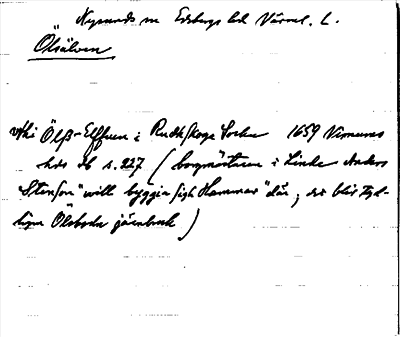 Nysunds sn Edsbergs hd Värml. L.
Ölsälven
vthi Ölß-Elffuen i Rudhskoga Sochn 1659 Värmens
hds db s. 227 (borgmästaren i Linde Anders
Stensson "will byggia sigh Hammar" där, det blir tyd-
ligen Ölsboda järnbruk)